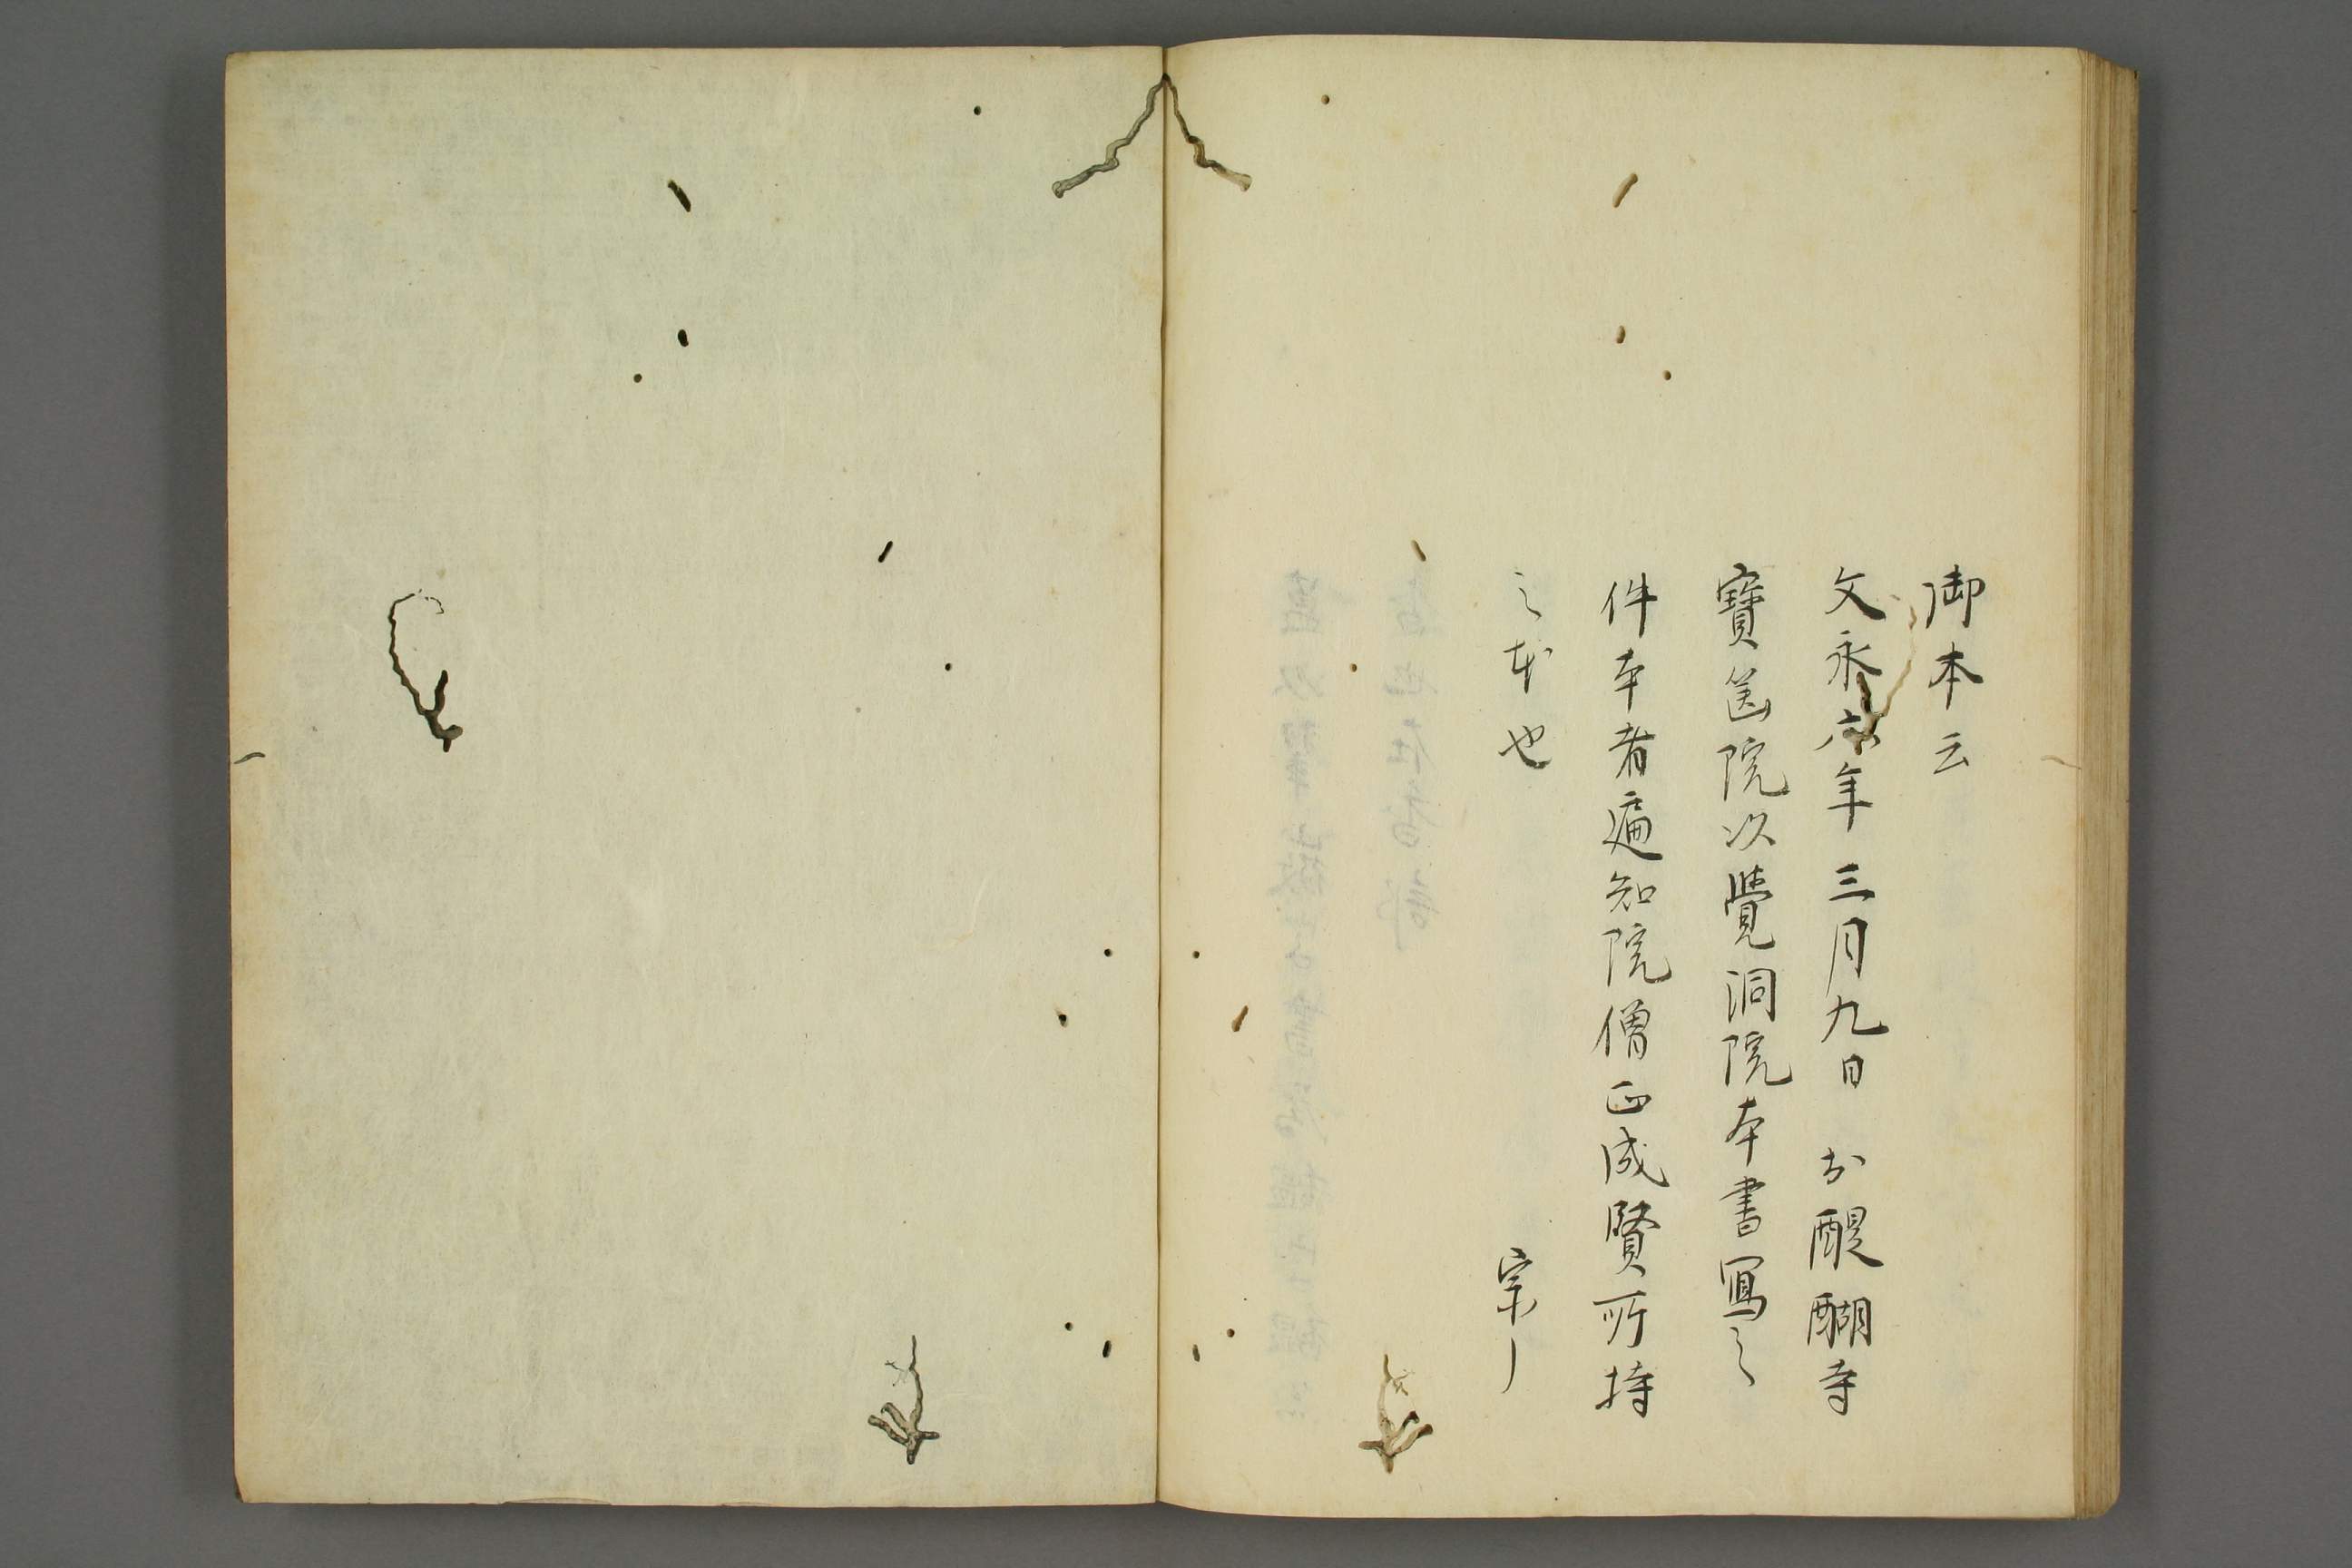 御本云
文永六年三月九日　於醍醐寺
寶筐院以覺洞院本書寫之
件本者遍知院僧正成賢所持
之本也　　　宗〳